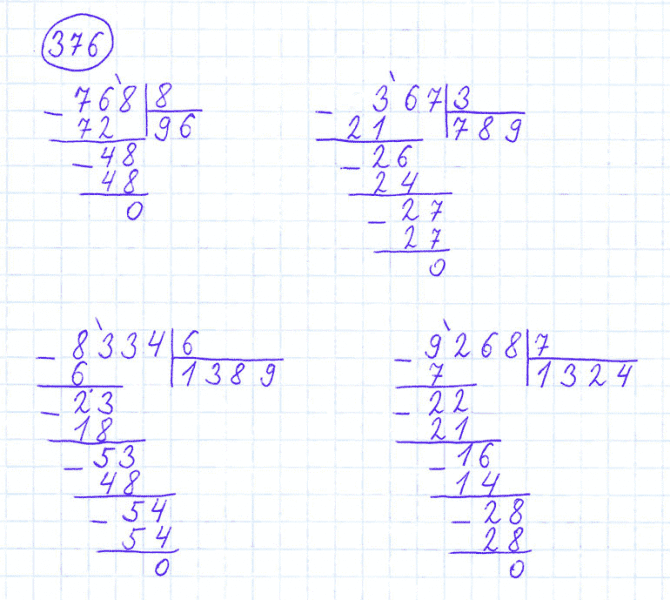 376
- 768 | 8
72 | 96
- 48
48
0
- 367 | 3
21 | 789
- 26
24
- 27
27
0
- 8334 | 6
6 | 1389
- 23
18
- 53
48
- 54
54
0
- 9268 | 7
7 | 1324
- 22
21
- 16
14
- 28
28
0